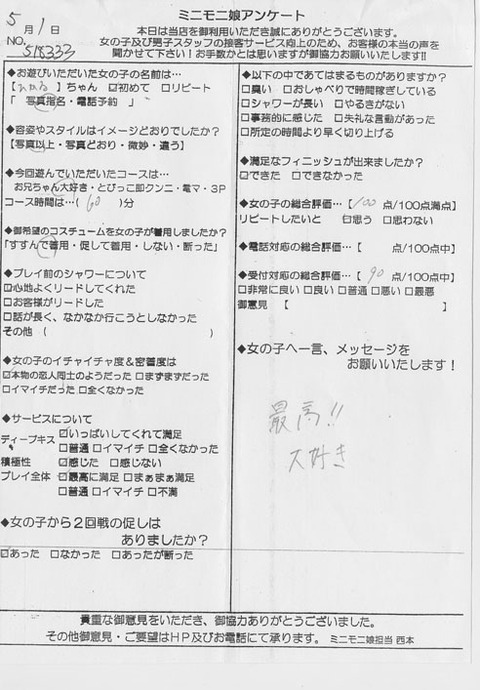 ミニモニ娘アンケート
5月1日
本日は当店を御利用いただき誠にありがとうございます。
NO. 518333
女の子及び男子スタッフの接客サービス向上のため、お客様の本当の声を
聞かせて下さい!お手数かとは思いますが御協力お願いいたします!!
◆お遊びいただいた女の子の名前は…
【ひかる】ちゃん ☑初めて □リピート
「 写真指名・電話予約 」
◆容姿やスタイルはイメージどおりでしたか?
【写真以上・写真とおり・微妙・違う】
◆今回遊んでいただいたコースは…
お兄ちゃん大好き・とびっこ即クンニ・電マ・3P
コース時間は…( 60 )分
◆御希望のコスチュームを女の子が着用しましたか?
「すすんで着用・促して着用・しない・断った」
◆プレイ前のシャワーについて
☑心地よくリードしてくれた
□お客様がリードした
□話が長く、なかなか行こうとしなかった
その他( )
◆女の子のイチャイチャ度&密着度は
☑本物の恋人同士のようだった □まずまずだった
□イマイチだった □全くなかった
◆サービスについて
ディープキス ☑いっぱいしてくれて満足
□普通 □イマイチ □全くなかった
積極性 ☑感じた □感じない
プレイ全体 ☑最高に満足 □まぁまぁ満足
□普通 □イマイチ □不満
◆女の子から2回戦の促しは
ありましたか?
☑あった □なかった □あったが断った
◆以下の中であてはまるものがありますか?
□臭い □おしゃべりで時間稼ぎしている
□シャワーが長い □やるきがない
□事務的に感じた □失礼な言動があった
□所定の時間より早く切り上げる
◆満足なフィニッシュが出来ましたか?
☑できた □できなかった
◆女の子の総合評価…【 100 点/100点満点】
リピートしたいと ☑思う □思わない
◆電話対応の総合評価…【 点/100点中】
◆受付対応の総合評価…【 90 点/100点中】
□非常に良い □良い □普通 □悪い □最悪
御意見【 】
◆女の子へ一言、メッセージを
お願いいたします!
最高!!
大好き
貴重な御意見をいただき、御協力ありがとうございました。
その他御意見・ご要望はHP及びお電話にて承ります。 ミニモニ娘担当 西本